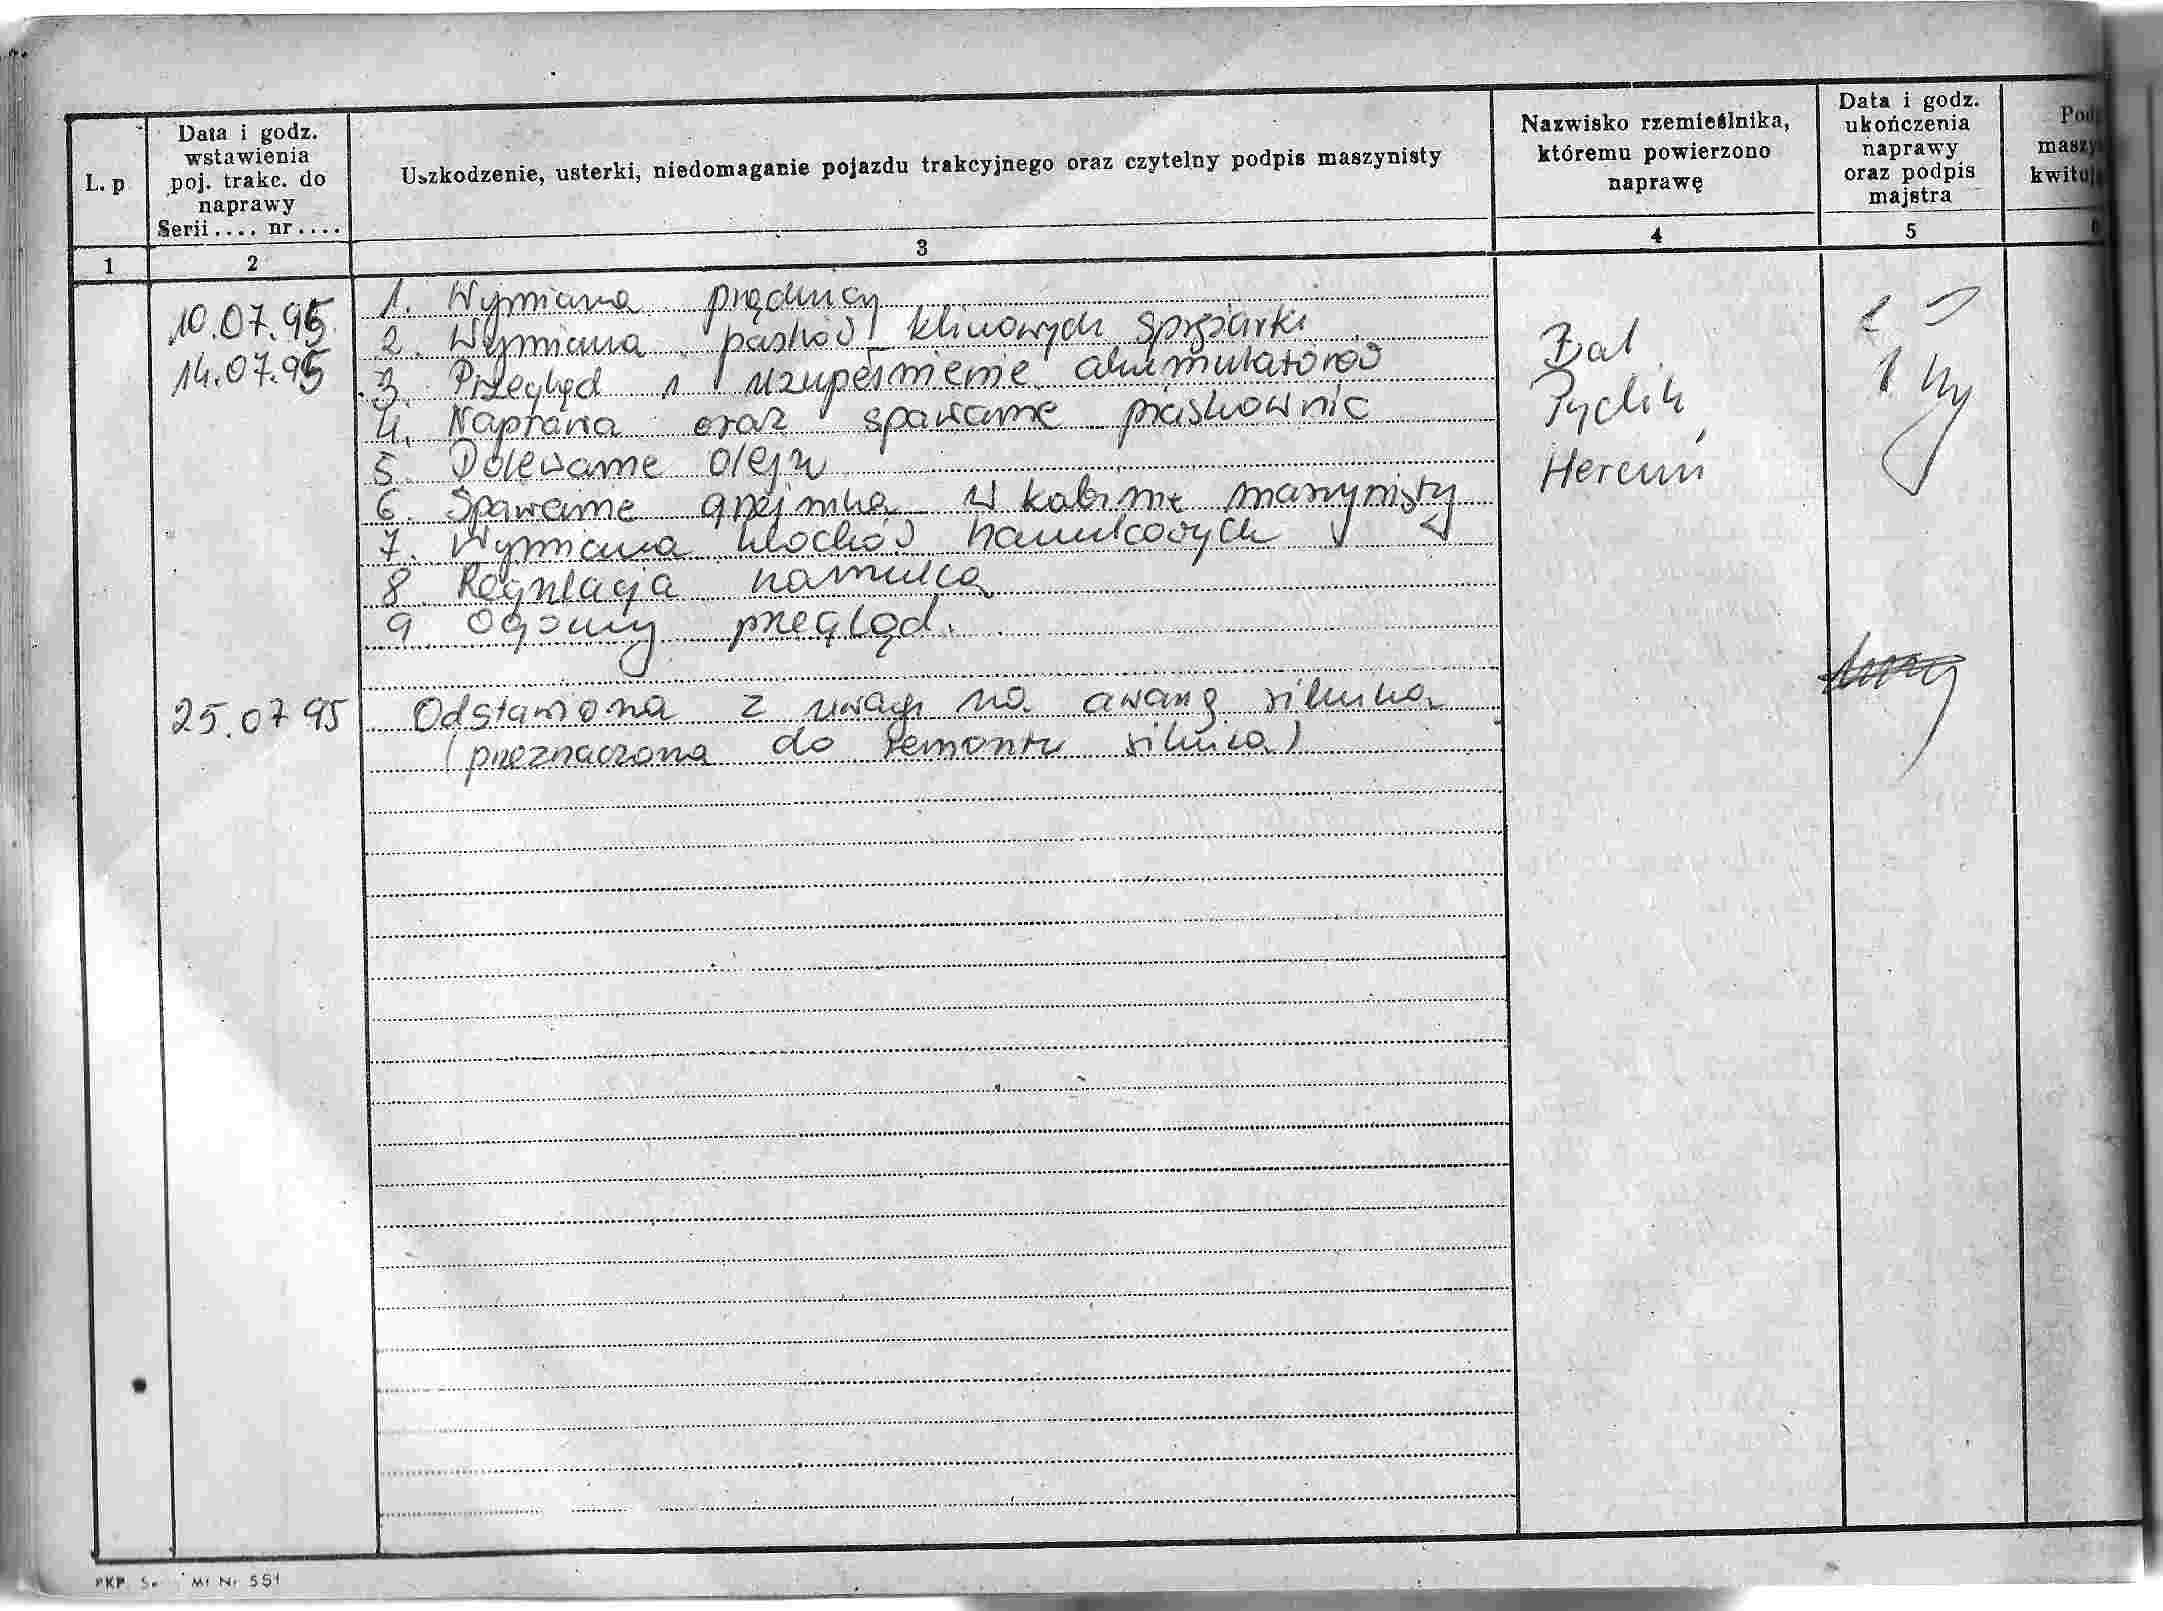 L. p
Data i godz.
wstawienia
poj. trakc. do
naprawy
Serii .... nr ....
Uszkodzenie, usterki, niedomaganie pojazdu trakcyjnego oraz czytelny podpis maszynisty
Nazwisko rzemieślnika,
któremu powierzono
naprawę
Data i godz.
ukończenia
naprawy
oraz podpis
majstra
1
2
3
4
5
10.07.95
14.07.95
1. Wymiana prądnicy
2. Wymiana pasków klinowych sprężarki
3. Przegląd i uzupełnienie akumulatorów
4. Naprawa oraz spawanie piaskownic
5. Dolewanie oleju
6. Spawanie grzejnika w kabinie maszynisty
7. Wymiana klocków hamulcowych
8. Regulacja hamulca
9 Ogólny przegląd.
Żal
Pyclik
25.07 95
Odstawiona z uwagi na awarię silnika
(przeznaczona do remontu silnika)
PKP Nr 551